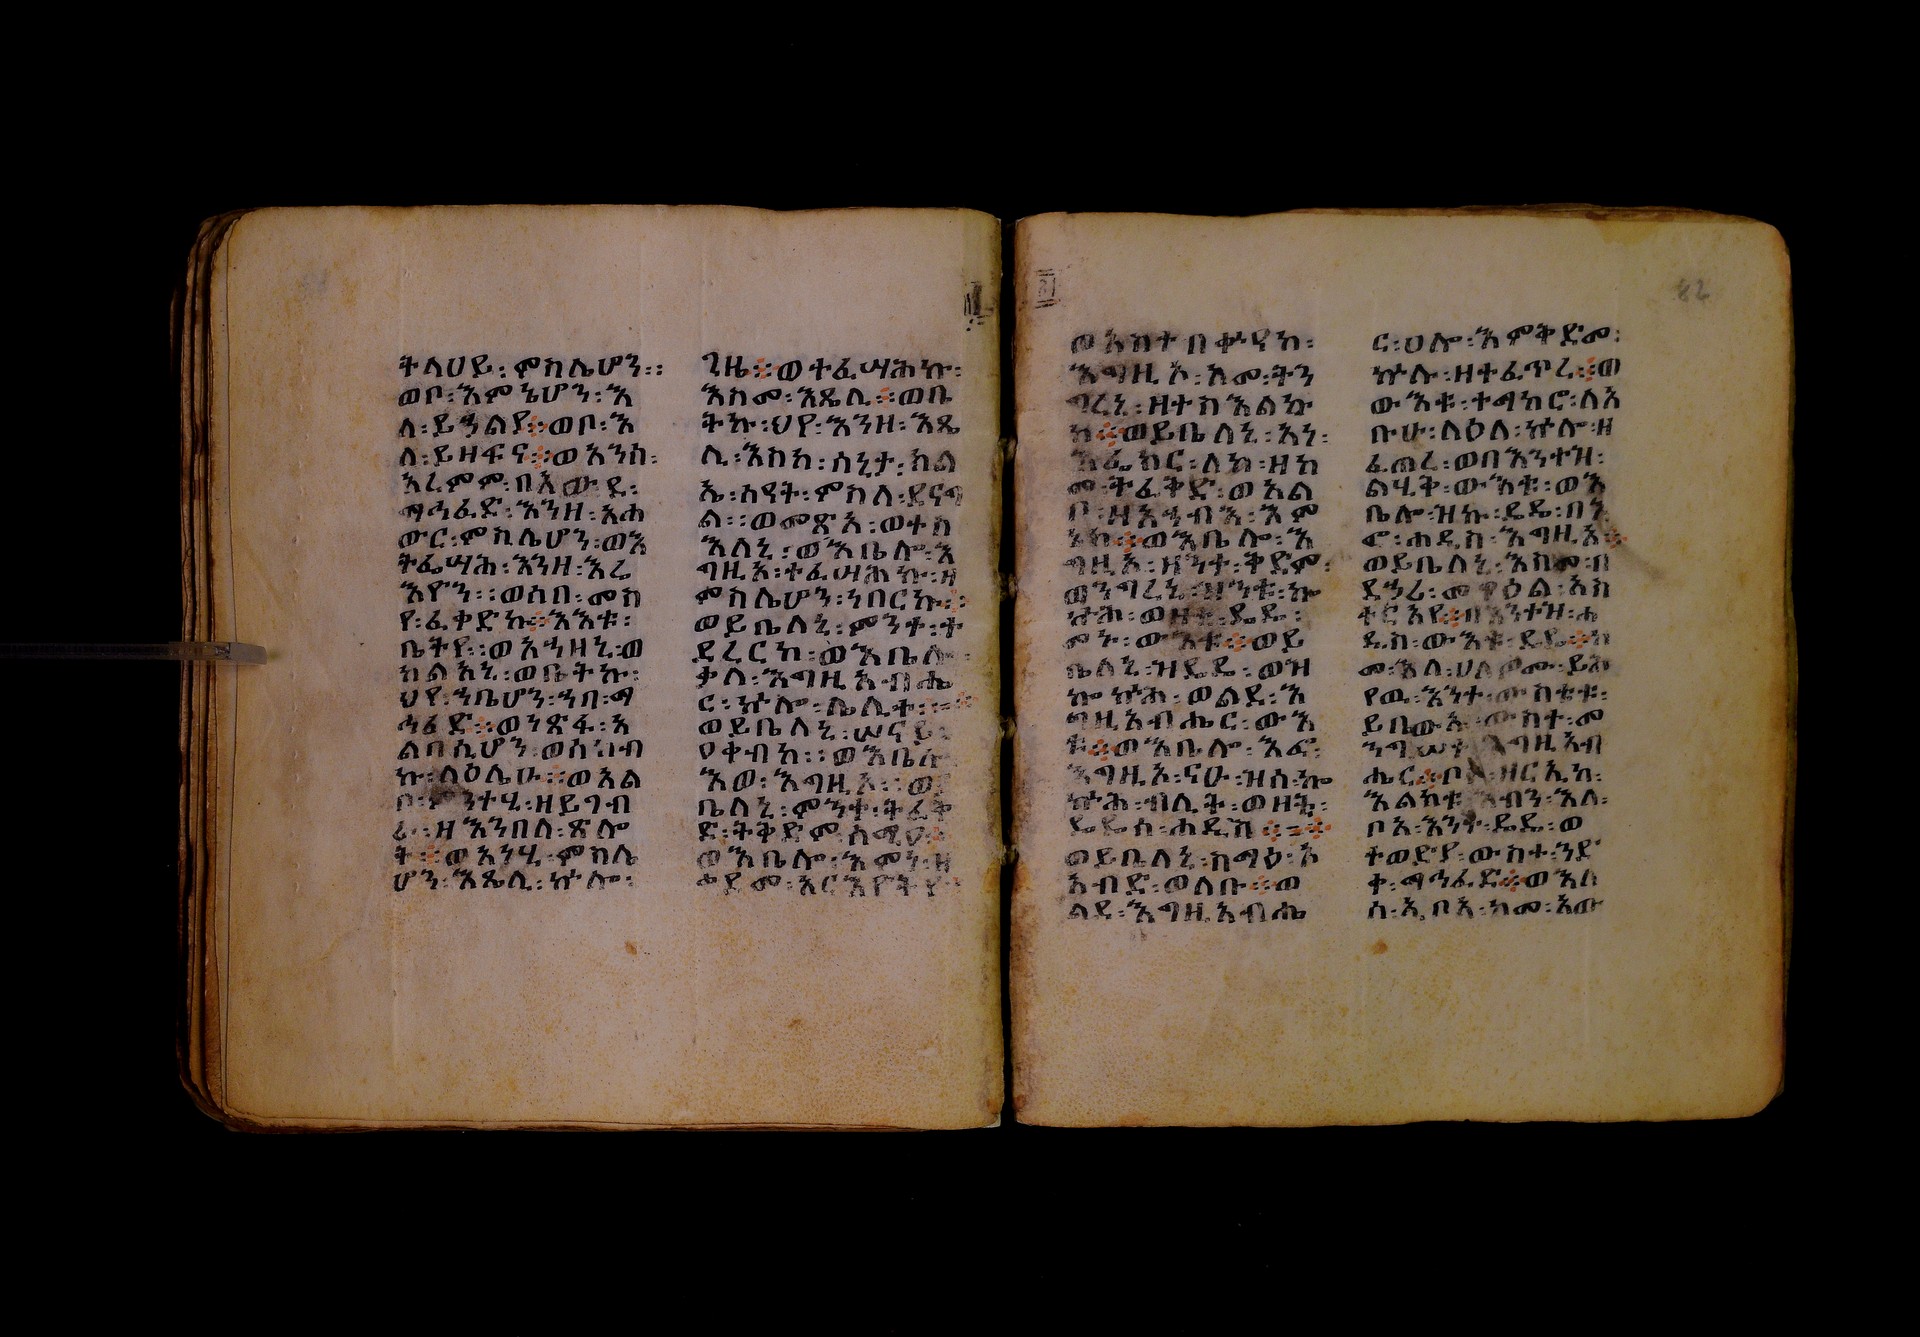 ትላህይ፡ምስሌሆን፡፡
ወቦ፡እምኔሆን፡እ
ለ፡ይኄልያ፡፡ወቦ፡እ
ለ፡ይዘፍና፡፡ወአንሰ፡
አረምም፡በአውደ፡
ማኅፈድ፡እንዘ፡አሐ
ውር፡ምስሌሆን፡ወእ
ትፌሣሕ፡እንዘ፡እሬ
እዮን፡፡ወሶበ፡መከ
የ፡ፈቀድኩ፡፡እእቱ፡
ቤትየ፡፡ወአኀዘኒ፡ወ
ከልአኒ፡ወቤትኩ፡
ህየ፡ኀቤሆን፡ኀበ፡ማ
ኅፈድ፡፡ወንጽፋ፡አ
ልባሲሆን፡ወሰከብ
ኩ፡ላዕሌሁ፡፡ወአል
ቦ፡ምንተሂ፡ዘይገብ
ሩ፡ዘእንበለ፡ጸሎ
ት፡፡ወአንሂ፡ምስሌ
ሆን፡እጼሊ፡ኵሎ፡
ጊዜ፡፡ወተፈሣሕኩ፡
እስመ፡እጼሊ፡፡ወቤ
ትኩ፡ህየ፡እንዘ፡እጼ
ሊ፡እስከ፡ሰኒታ፡ክል
ኤ፡ሰዓት፡ምስለ፡ደናግ
ል፡፡ወመጽአ፡ወተስ
እለኒ፡ወእቤሎ፡እ
ግዚአ፡ተፈሣሕኩ፡ዘ
ምስሌሆን፡ነበርኩ፡፡
ወይቤለኒ፡ምንተ፡ተ
ደረርከ፡ወእቤሎ
ቃለ፡እግዚአብሔ
ር፡ኵሎ፡ሌሊተ፡፡
ወይቤለኒ፡ሠናየ፡
ዐቀብከ፡፡ወእቤሎ
እወ፡እግዚኦ፡፡ወይ
ቤለኒ፡ምንተ፡ትፈቅ
ድ፡ትቅድም፡ሰሚዐ፡
ወእቤሎ፡እምነ፡ዘ
ቀደመ፡አርእዮትየ፡
ወአስተበቍዓከ፡
እግዚኦ፡አመ፡ትን
ግረኒ፡ዘተስእልኩ
ከ፡፡ወይቤለኒ፡አነ፡
እፌክር፡ለከ፡ዘከ
መ፡ትፈቅድ፡ወአል
ቦ፡ዘአኀብእ፡እም
ኔከ፡፡ወእቤሎ፡እ
ግዚአ፡ዘንተ፡ቅድም፡
ወንግረኒ፡ዝንቱ፡ኰ
ኵሕ፡ወዘቲ፡ዴዴ፡
መኑ፡ውእቱ፡፡ወይ
ቤለኒ፡ዝዴዴ፡ወዝ
ኰኵሕ፡ወልደ፡እ
ግዚአብሔር፡ውእ
ቱ፡፡ወእቤሎ፡እፎ፡
እግዚኦ፡ናሁ፡ዝሰ፡ኰ
ኵሕ፡ብሊት፡ወዘቲ፡
ዴዴሰ፡ሐዲሽ፡፡
ወይቤለኒ፡ስማዕ፡ኦ
አብድ፡ወለቡ፡፡ወ
ልደ፡እግዚአብሔ
ር፡ሀሎ፡እምቅድመ፡
ኵሉ፡ዘተፈጥረ፡፡ወ
ውእቱ፡ተማከሮ፡ለአ
ቡሁ፡ላዕለ፡ኵሎ፡ዘ
ፈጠረ፡ወበእንተዝ፡
ልሂቅ፡ውእቱ፡ወእ
ቤሎ፡ዝኩ፡ዴዴ፡በእ
ፎ፡ሐዲስ፡እግዚኦ፡፡
ወይቤለኒ፡እስመ፡በ
ደኃሪ፡መዋዕል፡አስ
ተርአየ፡፡በእንተዝ፡ሐ
ዲስ፡ውእቱ፡ዴዴ፡፡ከ
መ፡እለ፡ሀለዎሙ፡ይሕ
የዉ፡እንተ፡ውስቴቱ፡
ይበውኡ፡ውስተ፡መ
ንግሥተ፡እግዚአብ
ሔር፡፡ቦአ፡ዘርኢከ፡
እልክቱ፡እብን፡እለ፡
ቦአ፡እንተ፡ዴዴ፡ወ
ተወድያ፡ውስተ፡ንድ
ቀ፡ማኅፈድ፡፡ወእለ
ሰ፡ኢቦአ፡ከመ፡አው
82